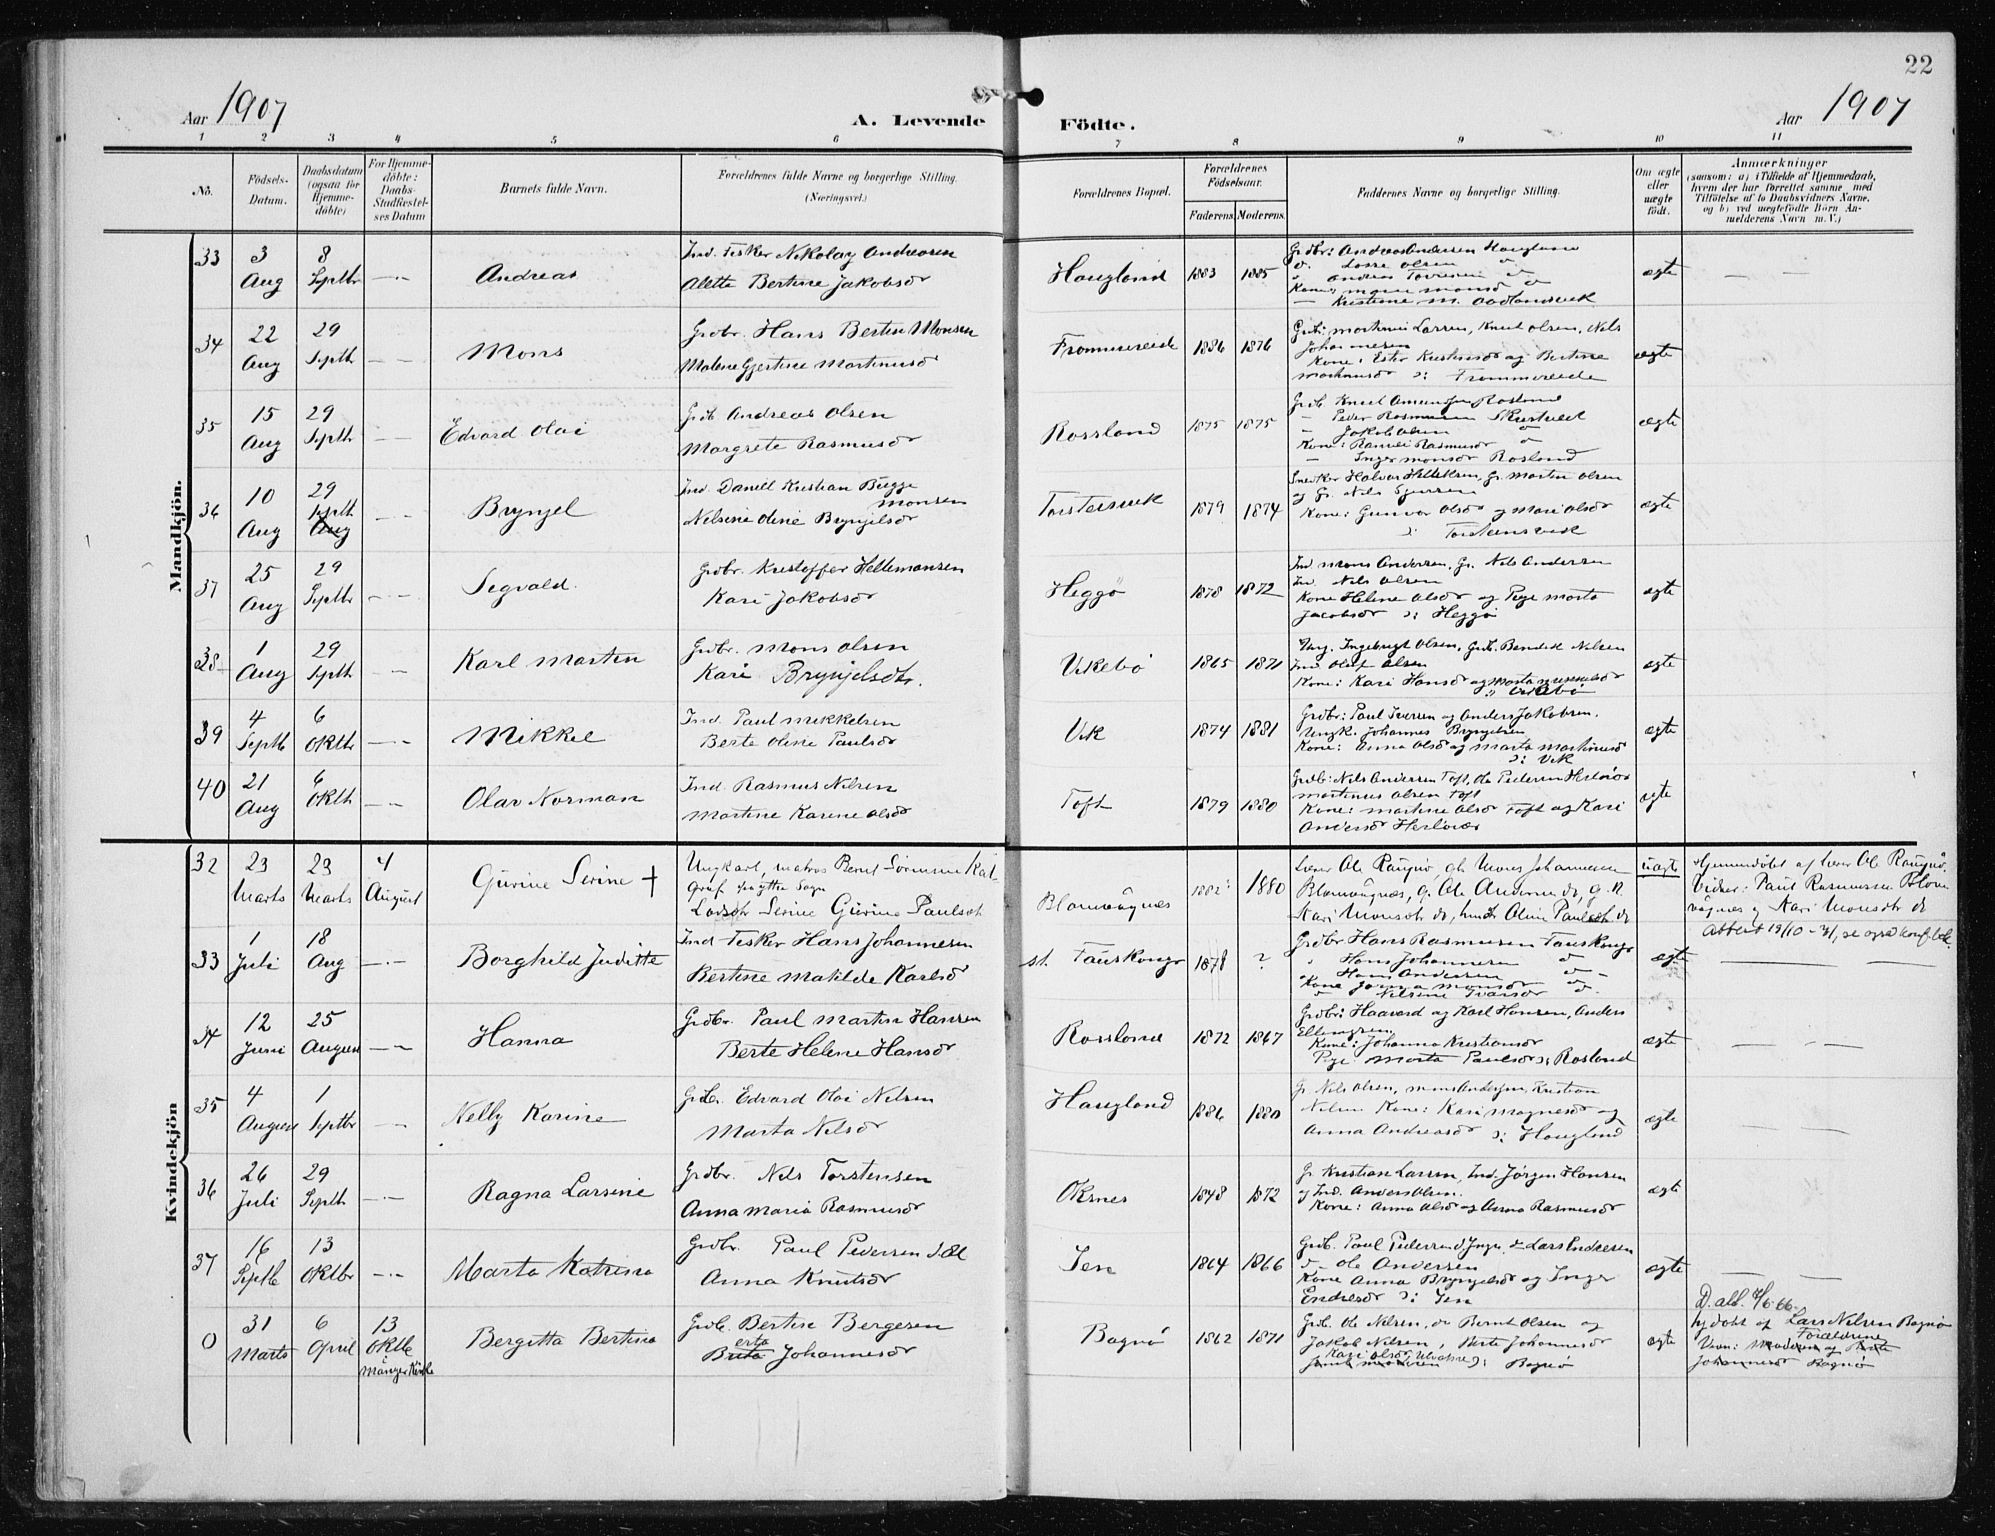 22
Aar 1907
A. Levende
Födte.
Aar 1907
1 2 3 4 5 6 7 8 9 10 11
No.
Födsels-
Datum.
Daabsdatum
(ogsaa for
Hjemme-
döbte)
For Hjemme-
döbte:
Daabs-
Stadfæstel-
ses Datum
Barnets fulde Navn.
Forældrenes fulde Navne og borgerlige Stilling.
(Næringsvei.)
Forældrenes Bopæl.
Forældrenes
Födselsaar.
Faderens. Moderens.
Faddernes Navne og borgerlige Stilling.
Om ægte
eller
uægte
født.
Anmærkninger
(saasom: a) i Tilfælde af Hjemmedaab,
hvem der har forrettet samme med
Tilföielse af to Daabsvidners Navne,
og b) ved uægtefödte Börn An-
melderens Navn m.V.)
Mandkjön.
33 3 Aug 8 Septbr Andreas
Ind. Fisker Nikolay Andreasen
Alette Bertine Jakobsdr
Haugland 1883 1885
Grdbr: Andreas Andersen Haugland
Lasse Olsen
Kone: Magne Monsd
Kristine M. Aadlandsvik
ægte
34 22 Aug 29 Septb Mons
Grdbr. Hans Bertin Monsen
Malene Gjertine Martinusd
Frommereide 1886 1876
Grb: Martinus Larsen, Knut Olsen, Nils
Johannesen
Kone: Ester Kristensdr og Bertine
Martinusdr ɔ: Frommereide
ægte
35 15 Aug 29 Septb Edvard Olai
Grdb Andreas Olsen
Margrete Rasmusdr
Rossland 1875 1875
Grdb. Knut Amundsen Rosland
Peder Rasmussen
Jakob Olsen
Kone: Rasmusdr
Inger Monsdr Rosland
ægte
36 10 Aug 29 Septb Aug Brynjel
Ind. Daniel Kristian Bugge
Monsen
Nelsine Oline Brynjelsdr
Torstensvik 1879 1874
Snedker Halvor Gr. Martin Olsen
og Gr. Nils
Kone: Gunvor Olsdr og Mari Olsdr
ɔ: Torstensvik
ægte
37 25 Aug 29 Septbr Segvald.
Grdbr. Kristoffer Hellemansen
Kari Jakobsdr
Heggö 1878 1872
Ind Mons Andersen, Gr. Nils Andersen
Ind. Nils Olsen
Kone Helene Olsdr og Pige Marta
Jacobsdr ɔ: Heggö
ægte
38 1 Aug 29 Septb Karl Martin
Grdbr. Mons Olsen
Kari Brynjelsdtr.
Vikebö 1865 1871
Ung. Ingebrigt Olsen, Grdb. Bendik Nilsen
Ind Oluf Olsen
Kone: Kari Hansdr og Marta
Vikebö
ægte
39 4 Septb 6 Oktbr Mikkel
Ind. Paul Mikkelsen
Berte Oline Paulsdr
Vik 1874 1881
Grdbr: Paul Iversen og Anders Jakobsen.
Ungk. Johannes Brynjelsen
Kone: Anna Olsd og Marta Martinusd
ɔ: Vik
ægte
40 21 Aug 6 Oktb Olav Norman
Ind. Rasmus Nilsen
Martine Karine Olsdr
Toft 1879 1880
Grdb: Nils Andersen Toft, Ole Pedersen Herlöver
Martinus Olsen Toft
Kone: Martine Olsdr Toft og Kari
Andersdr Herlöver
ægte
Kvindekjön
32 23 Marts 23 Marts 4 August Gurine Serine +
Ungkarl, Matros Bernt Sörensen
Lösdtr Serine Gurine Paulsdtr
Blomvågnes 1882 1880
Lærer Ole Rangnö, do Mons Johannesen
Blomvågnes, g. Ole Andersen do, g.
Kari Monsdtr do, Oline Paulsdtr do
uægte
Hjemmedöbt af lærer Ole Rangnö
Vidner: Paul Rasmussen Blom-
vågnes og Kari Monsdtr do
Attest 19/10-31, se også konf.bok.
33 1 Juli 18 Aug Borghild Juditte
Ind Fisker Hans Johannesen
Bertine Matilde Karlsd
st. Tauskonge 1878 ?
Grdbr Hans Rasmussen Tauskonge
Hans Johannesen
Hans Andersen
Kone Monsdr
Nilsine Ivarsdr
ægte
34 12 Juni 25 August Hanna
Grdbr. Paul Martin Hansen
Berte Helene Hansdr
Rossland 1872 1867
Grdbr: Haavard og Karl Hansen, Anders
Ellingsen
Kone: Johanna Kristiansdr
Pige Marta Paulsdr ɔ: Rosland
ægte
35 4 August 1 Septbr Nelly Karine
Grdbr. Edvard Olai Nilsen
Marta Nilsdr
Haugland 1886 1880
Gr. Nils Olsen, Mons Andersen, Kristian
Nilsen Kone: Kari Magnesdr og
Anna Andreasdr ɔ: Haugland
ægte
36 26 Juli 29 Septb Ragna Larsine
Grdbr. Nils Torstensen
Anna Maria Rasmusdr
Oksnes 1848 1872
Gr. Kristian Larsen, Ind. Jörgen Hansen
og Ind. Anders Olsen.
Kone: Anna Olsdr og Anna Rasmusdr
ægte
37 16 Septb 13 Oktbr Marta Katrina
Grdbr. Paul Pedersen d. Æl
Anna Knutsdr
Jen 1864 1866
Grdb. Paul Pedersen d Yngr. Lars Endresen
Ole Andersen
Kone Anna Brynjelsdr og Inger
Endresdr ɔ: Jen
ægte
0 31 Marts 6 April 13 Oktb Manger Kirke Bergitta Bertina
Grdb. Bertin Bergesen
Brita Berta Johannesdr
Bognö 1862 1871
Grdb. Ole Nilsen, do Bernt Olsen og
Jakob Nilsen, Berte Johannesdr
Kari Olsdr ɔ: Bognö
ægte
D. att. 4/6 66.
hj döbt af Lars Nilsen Bognö
Forældrene
Vidn: Moderen og Berte
Johannesdr Bognö